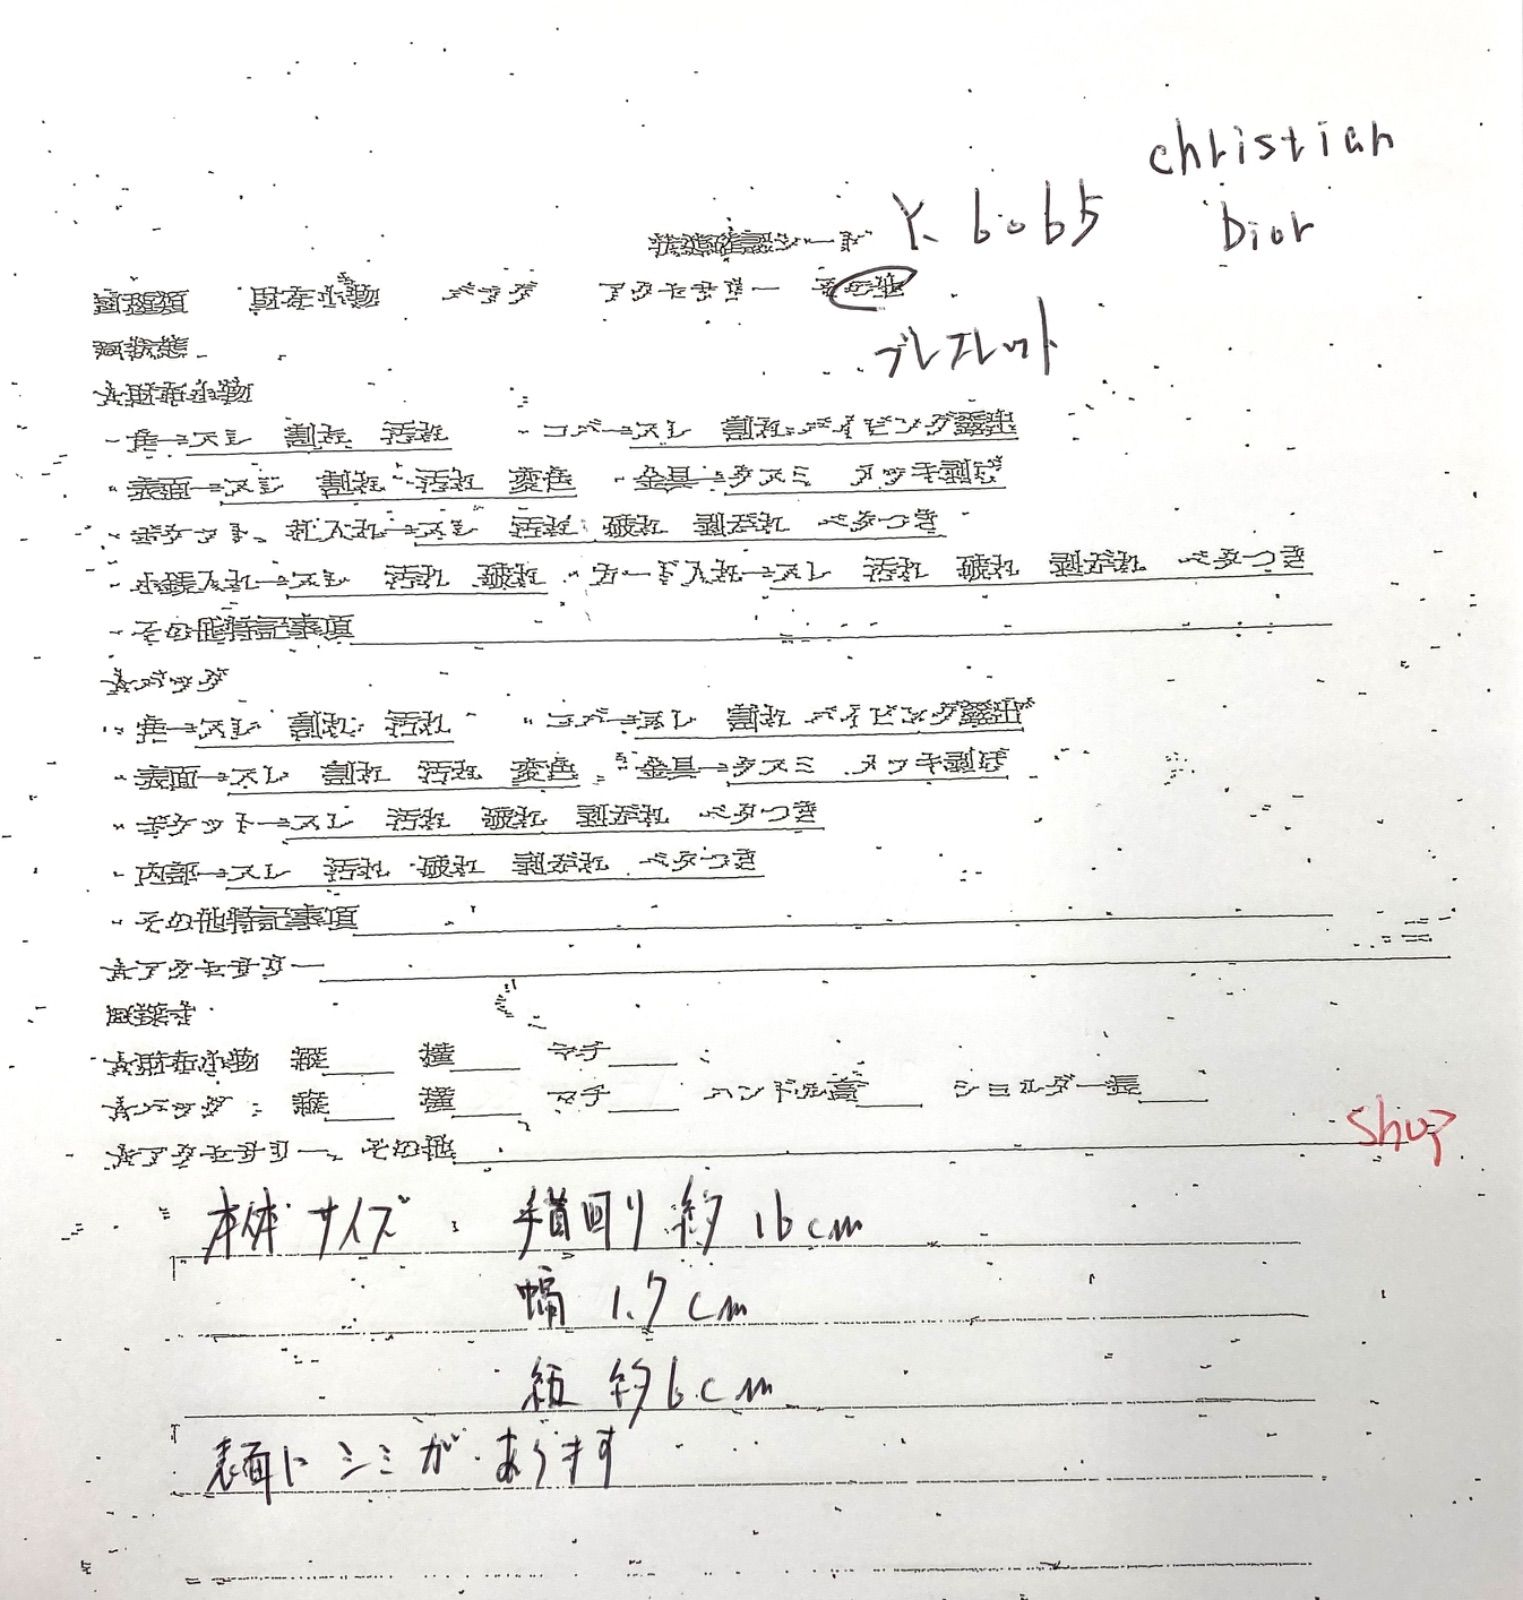 christian
Dior
状態確認シート Y. 6065
財布小物 バッグ アクセサリー その他
ブレスレット
状態
☆財布小物
・角→スレ 割れ 汚れ ・コバ→スレ 割れ パイピング露出
・表面→スレ 割れ 汚れ 変色 ・金具→クスミ メッキ剥げ
・ポケット、札入れ→スレ 汚れ 破れ 型崩れ ベタつき
・小銭入れ→スレ 汚れ 破れ ・カード入れ→スレ 汚れ 破れ 型崩れ ベタつき
・その他特記事項
☆バッグ
・角→スレ 割れ 汚れ ・コバ→スレ 割れ パイピング露出
・表面→スレ 割れ 汚れ 変色 ・金具→クスミ メッキ剥げ
・ポケット→スレ 汚れ 破れ 型崩れ ベタつき
・内部→スレ 汚れ 破れ 型崩れ ベタつき
・その他特記事項
☆アクセサリー
採寸
☆財布小物 縦 横 マチ
☆バッグ : 縦 横 マチ ハンドル高 ショルダー長
☆アクセサリー、その他
shop
本体サイズ : 手首回り 約16cm
幅 1.7cm
紐 約6cm
表面にシミがあります